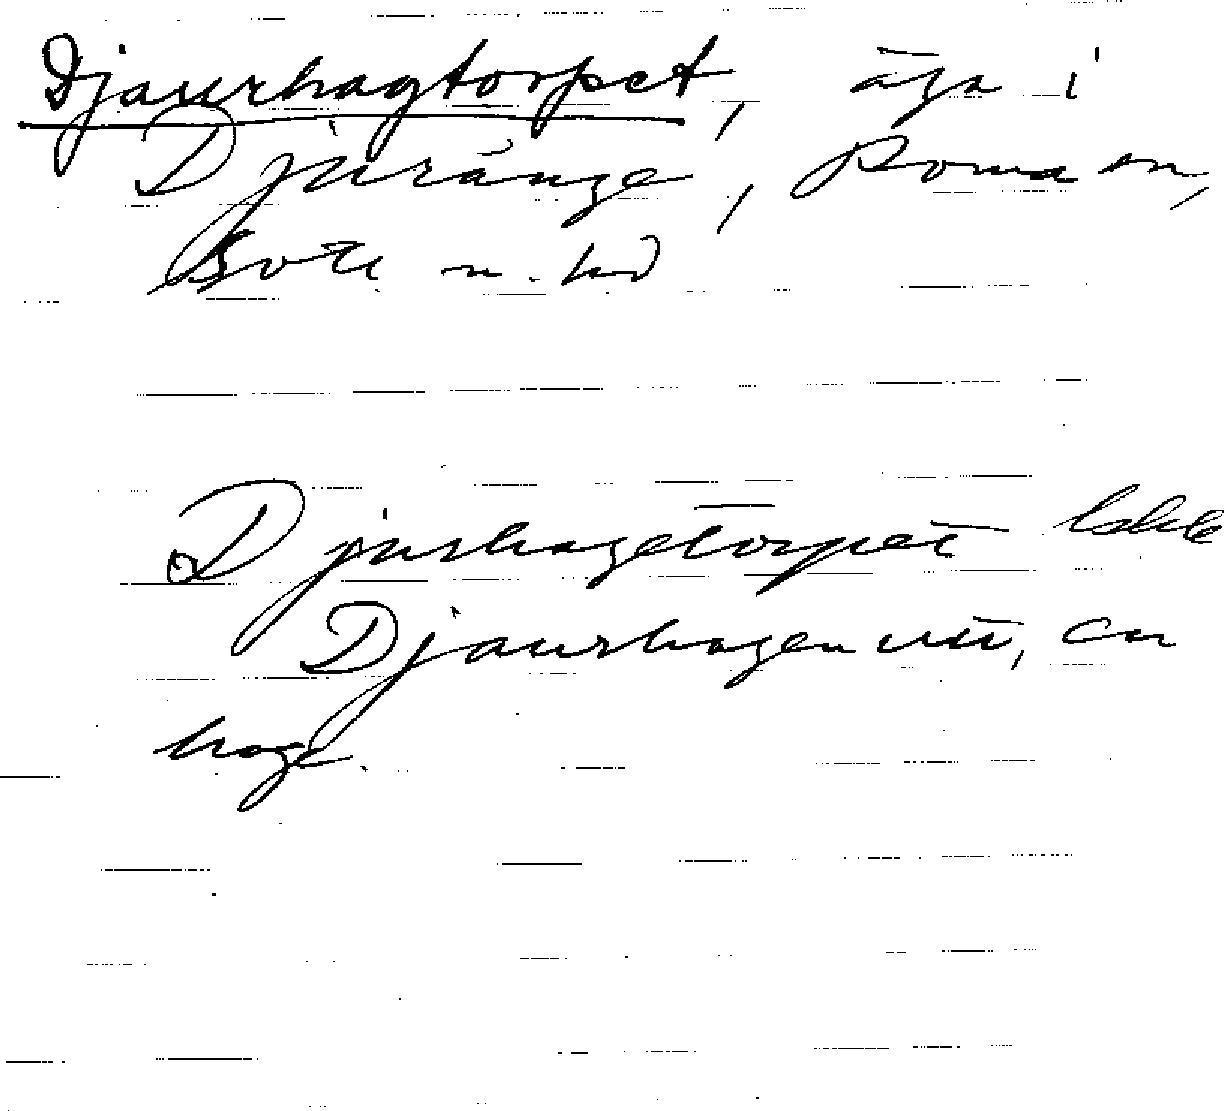 Djaurhagtorpet, äga i
Djuränge, Roma sn,
Gotl. n. hd
Djurhagetorpet
Djaurhagen utt, en
hage.